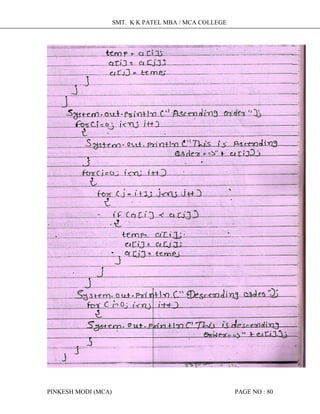 SMT. K K PATEL MBA / MCA COLLEGE
temp = a[i];
a[i] = a[j];
a[j] = temp;
}
}
}
System.out.println("Ascending order");
for(i=0; i<n; i++)
{
System.out.println("This is Ascending
order=>" + a[i]);
}
for(i=0; i<n; i++)
{
for (j=i+1; j<n; j++)
{
if (a[i] < a[j])
{
temp= a[i];
a[i] = a[j];
a[j] = temp;
}
}
}
System.out.println("Descending order");
for (i=0; i<n; i++)
{
System.out.println("This is descending
order=>" + a[i]);
}
}
}
PINKESH MODI (MCA) PAGE NO : 80